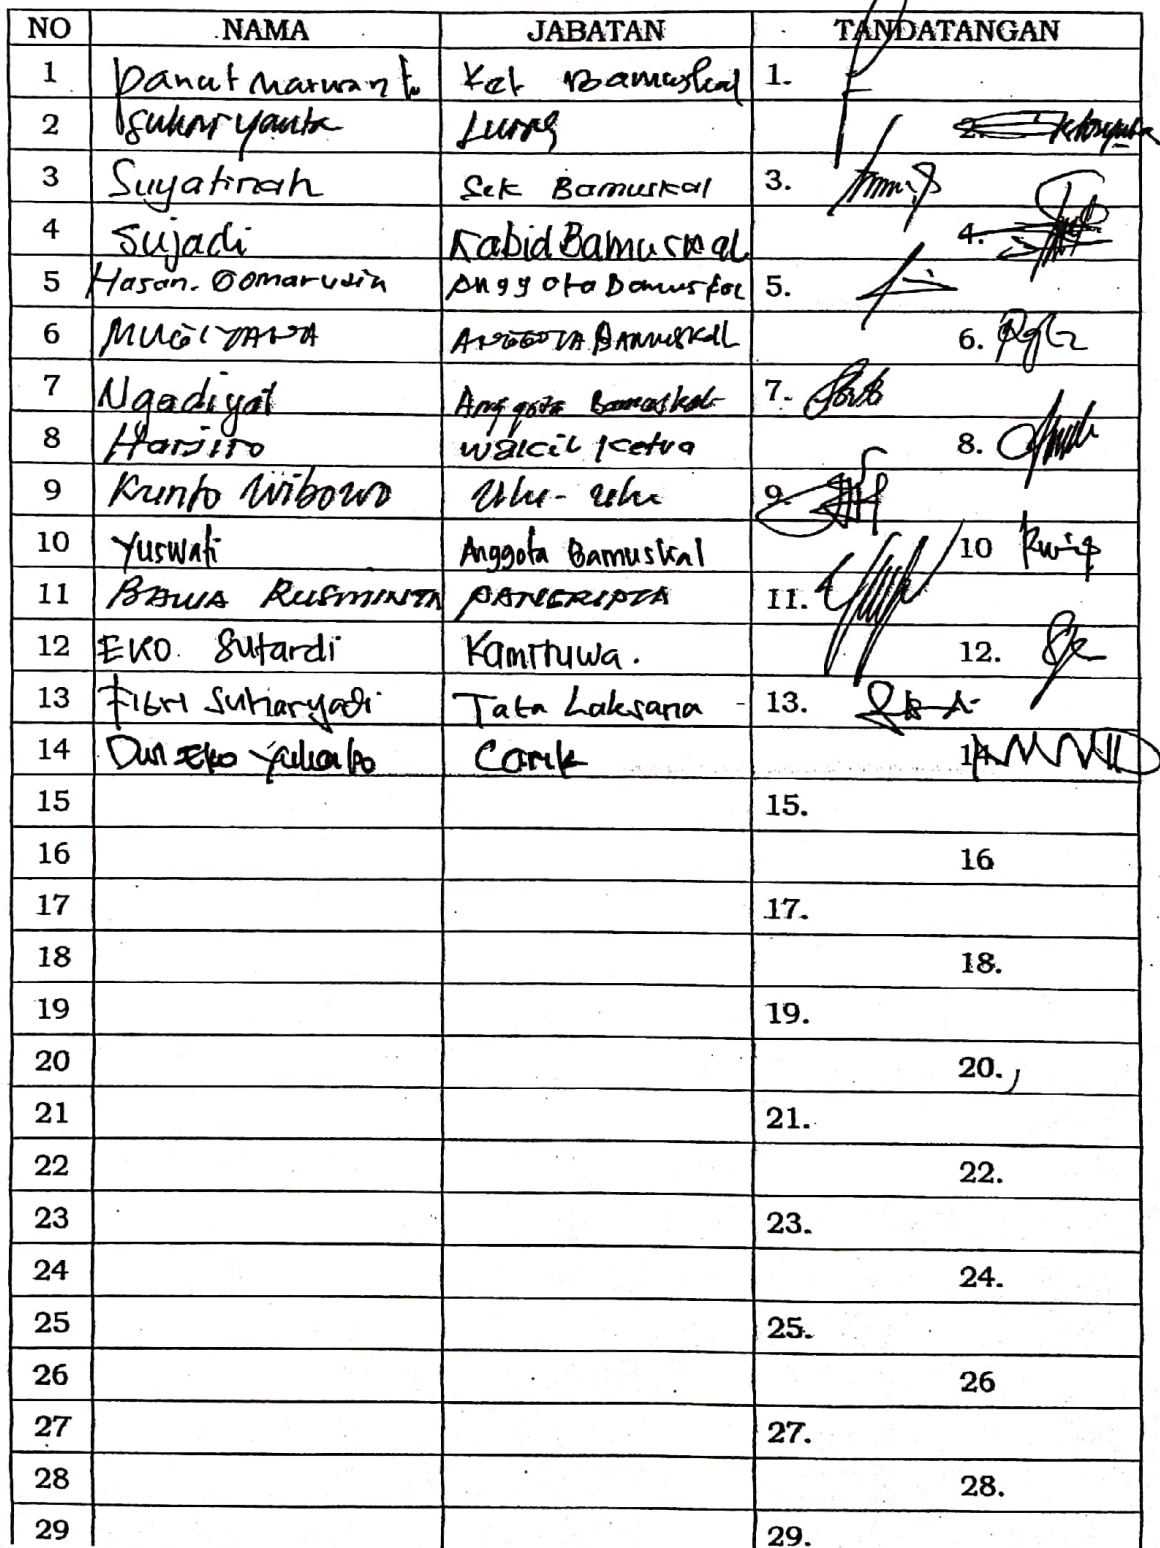 NO NAMA JABATAN TANDATANGAN
1 Danut Marwanto Ket Bamuskal 1.
2 Sukaryanta Lurah 2.
3 Suyatinah Sek Bamuskal 3.
4 Sujadi Kabid Bamuskal 4.
5 Hasan. Qomarudin Anggota Bamuskal 5.
6 MUGIYANA ANGGOTA BAMUSKAL 6.
7 Ngadiyat Anggota Bamuskal 7.
8 Harjito Wakil Ketua 8.
9 Kunto Wibowo Ulu-ulu 9.
10 Yuswati Anggota Bamuskal 10
11 BAWA RUSMINTA PANGRIPTA 11.
12 EKO Sutardi Kamituwa. 12.
13 Fibri Sutiaryadi Tata Laksana 13.
14 Dwi Eko Carik 14.
15 15.
16 16
17 17.
18 18.
19 19.
20 20.
21 21.
22 22.
23 23.
24 24.
25 25.
26 26
27 27.
28 28.
29 29.